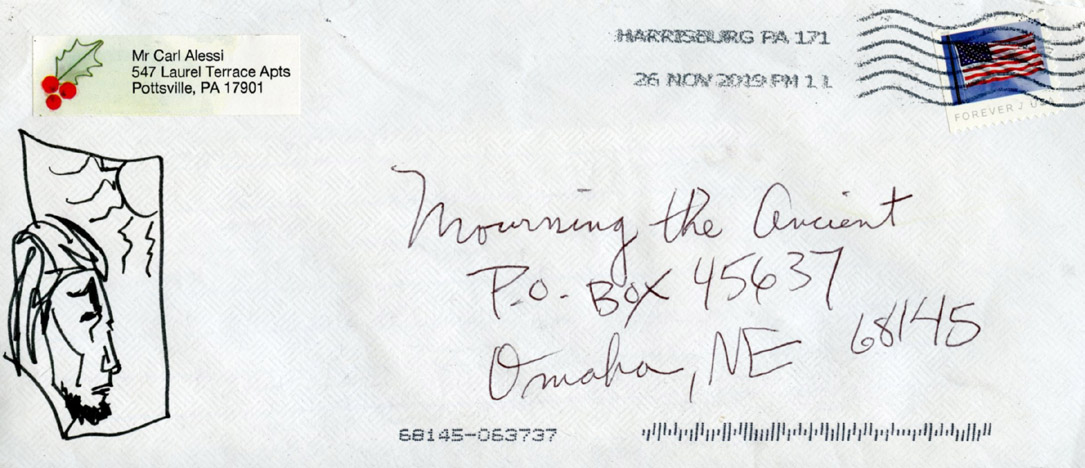 Mr Carl Alessi
547 Laurel Terrace Apts
Pottsville, PA 17901
HARRISBURG PA 171
26 NOV 2019 PM 1 L
FOREVER / US
Mourning the Ancient
P.O. Box 45637
Omaha, NE 68145
68145-063737